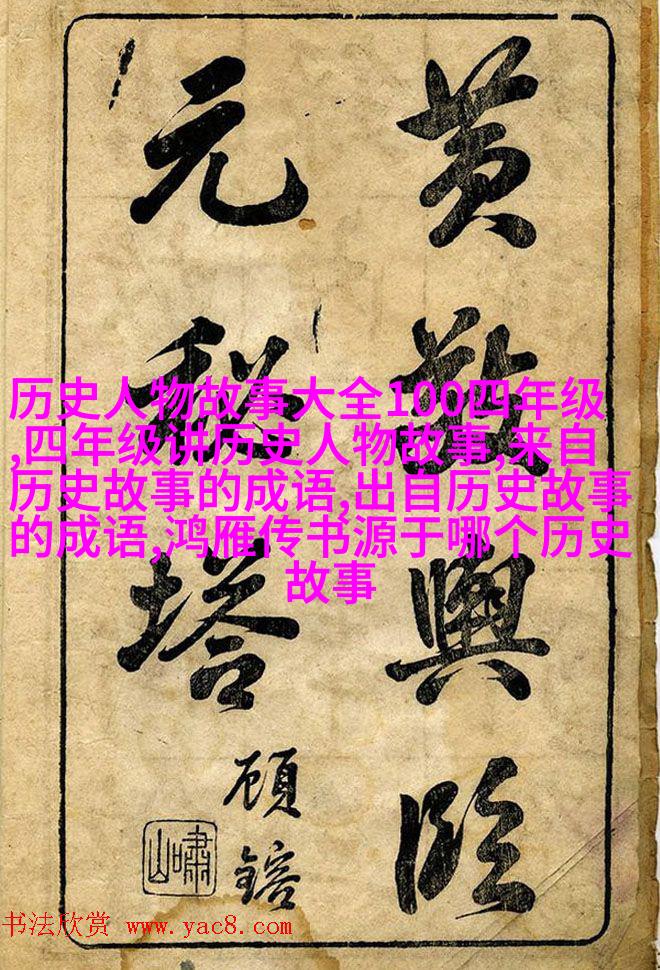 黃敬輿臨
元秘塔
顧鎔
嘯山
历史人物故事大全100四年级
,四年级讲历史人物故事,来自
历史故事的成语,出自历史故事
的成语,鸿雁传书源于哪个历史
故事
书法欣赏 www.yac8.com